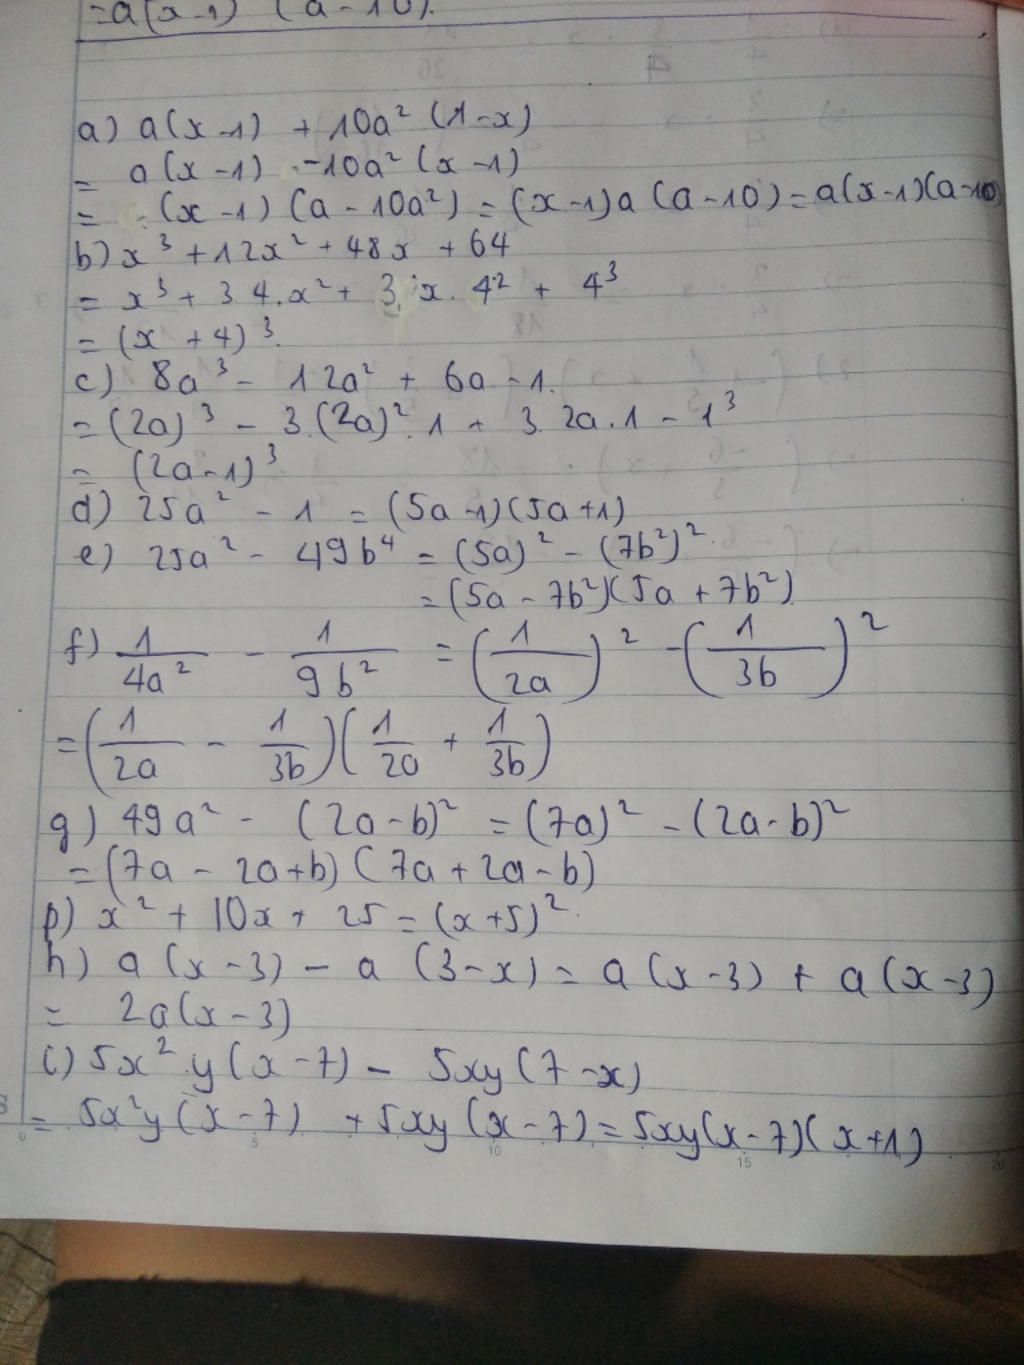 =a(x-1) (a-10).
a) a(x-1) + 10a² (1-x)
= a(x-1) -10a² (x-1)
= (x-1) (a-10a²) = (x-1)a (a-10) = a(x-1)(a-10)
b) x³ + 12x² + 48x + 64
= x³ + 3 4.x² + 3.x. 4² + 4³
= (x + 4)³.
c) 8a³ - 12a² + 6a - 1.
= (2a)³ - 3.(2a)².1 + 3 2a.1 - 1³
= (2a-1)³.
d) 25a² - 1 = (5a-1)(5a+1)
e) 25a² - 49b⁴ = (5a)² - (7b²)².
= (5a - 7b²)(5a + 7b²)
f) 1/4a² - 1/9b² = (1/2a)² - (1/3b)²
= (1/2a - 1/3b)(1/2a + 1/3b)
g) 49a² - (2a-b)² = (7a)² - (2a-b)²
= (7a - 2a+b) (7a + 2a - b)
p) x² + 10x + 25 = (x+5)².
h) a (x-3) - a (3-x) = a (x-3) + a (x-3)
= 2a(x-3)
i) 5x².y(x-7) - 5xy(7-x)
= 5x²y(x-7) +5xy (x-7) = 5xy(x-7)(x+1)
0 5 10 15 20